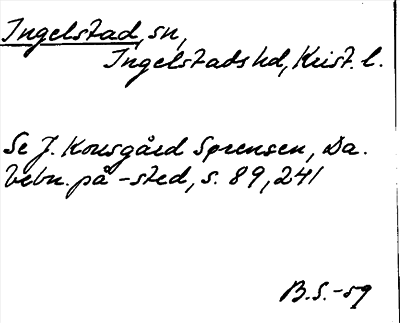 Ingelstad, sn,
Ingelstads hd, Krist. l.
Se J. Kousgård Sørensen, Da.
bebn. på -sted, s. 89, 241
B.S.-59